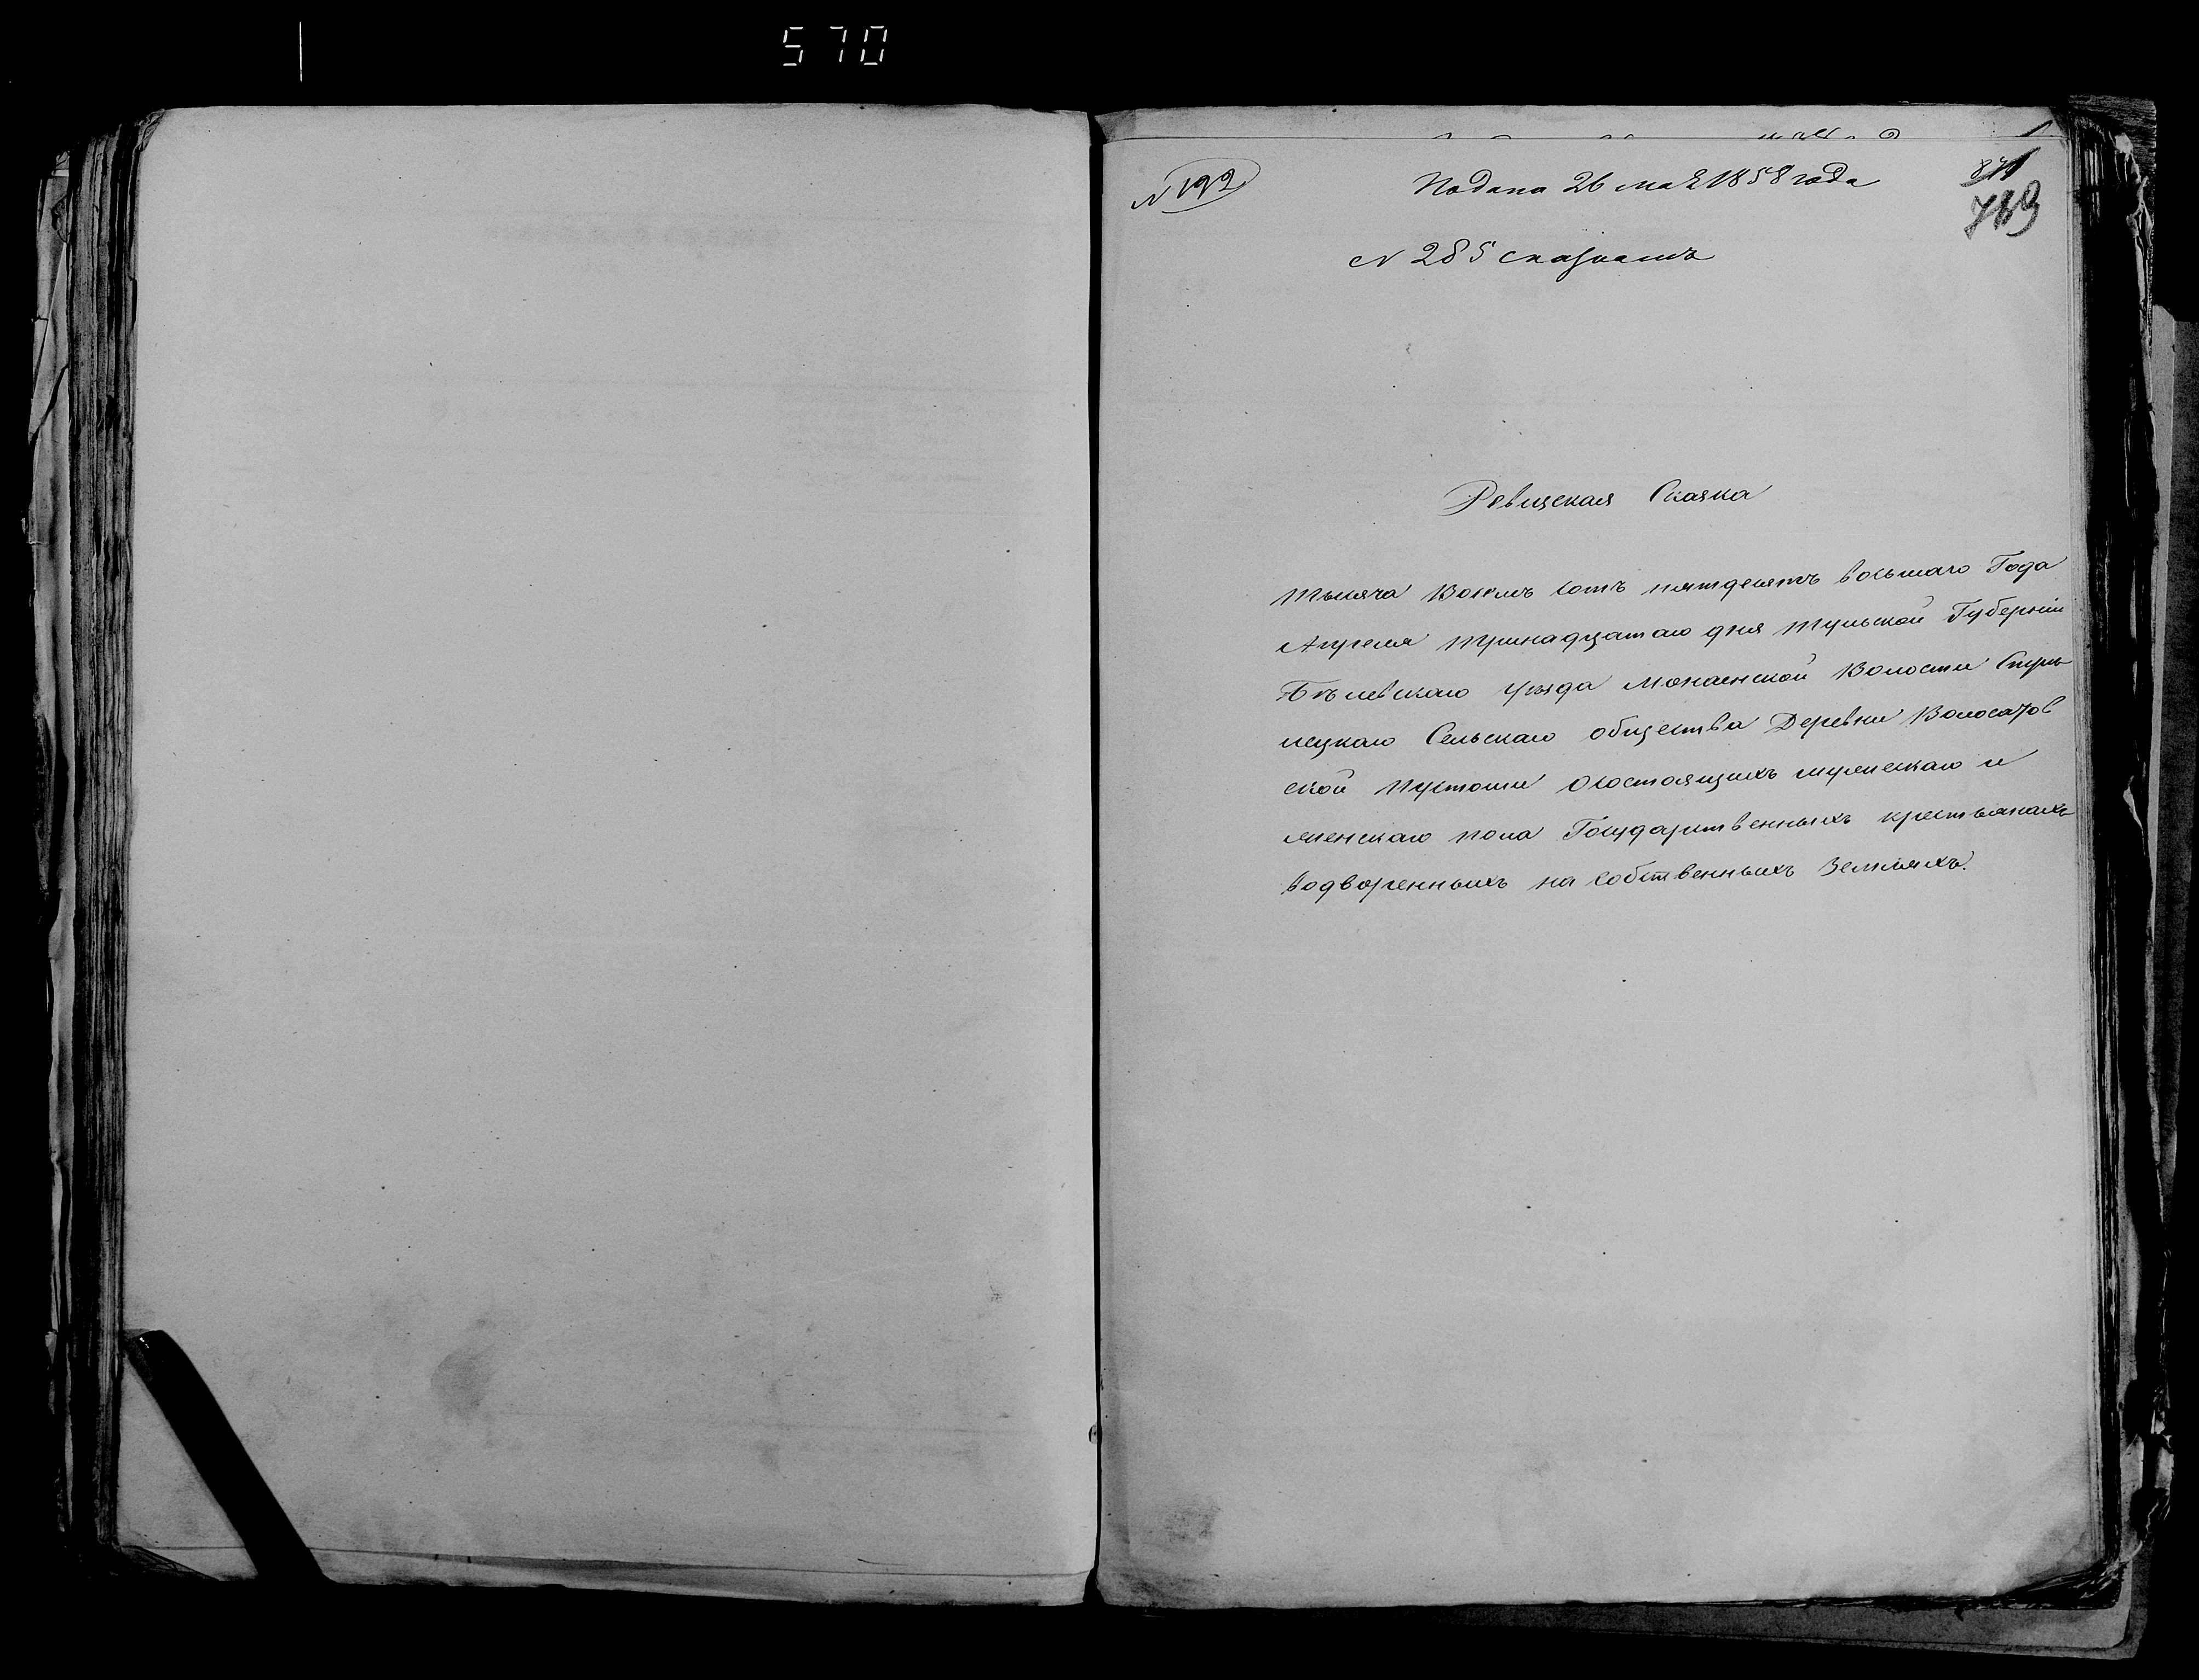 570
N 192
Подана 26 мая 1858 года
N 285 сказкамъ
Ревижская Сказка
Тысяча Восемь сотъ пятдесятъ восьмаго Года
Апреля тринадцатаго дня Тульской Губерніи
Бѣлевскаго уѣзда Монаенской Волости
Сельскаго общества Деревни Волосатов
ской пустоши о состоящихъ мужескаго и
женскаго пола Государственныхъ крестьянахъ
водворенныхъ на собственныхъ Земляхъ.